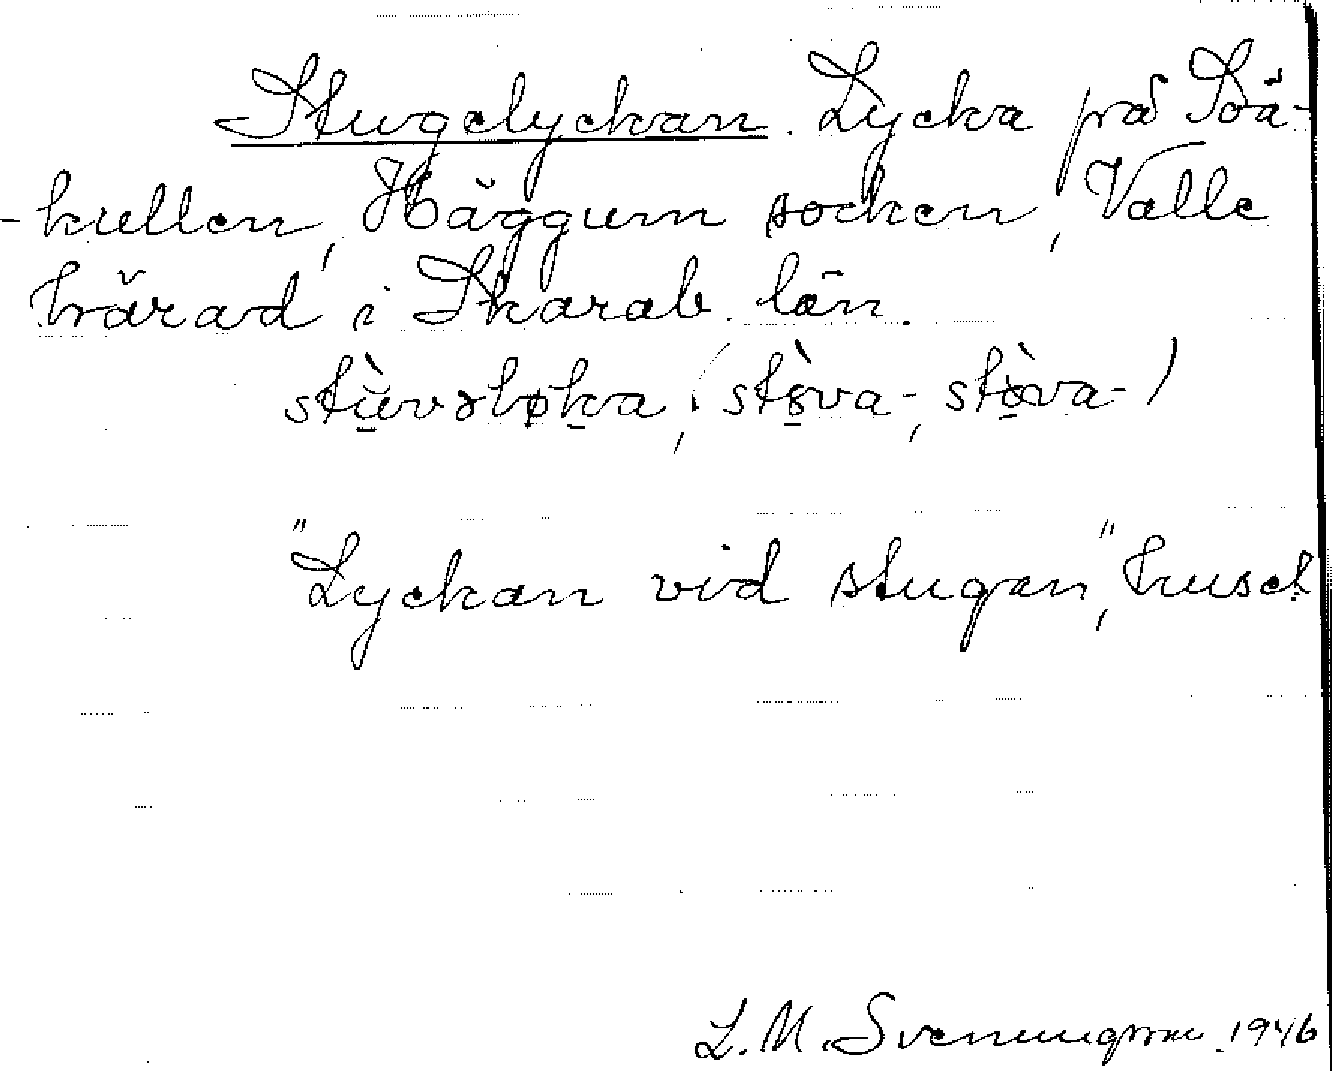 Stugelyckan. Lycka på Soä-
-kullen, Häggum socken, Valle
härad i Skarab. län.
stùvəløka, (stòva-, stòva-)
"Lyckan vid stugan", huset
L. M. Svenungsson. 1946